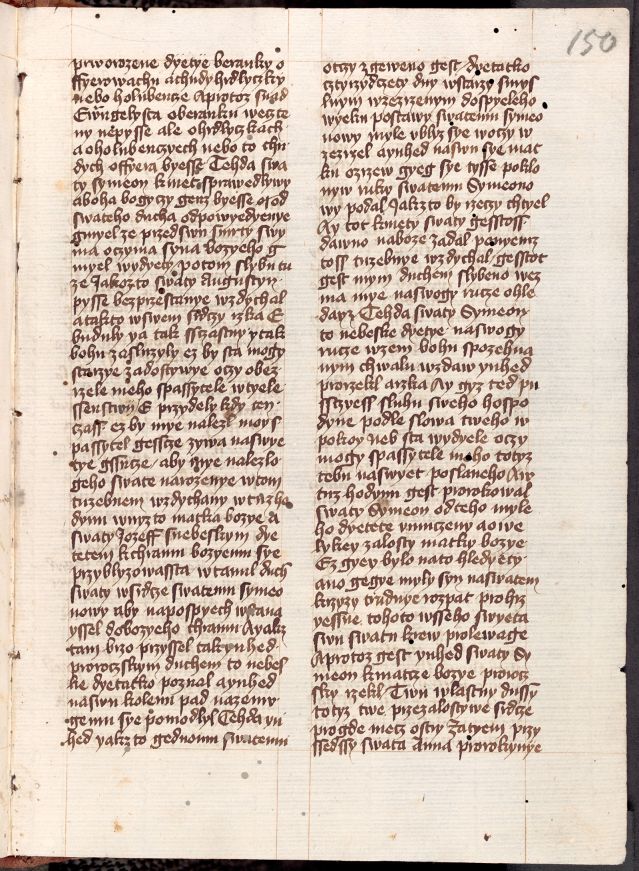 150
prworozene dyetye beranky o
ffyerowachu a chudy hrdlyczky
nebo holubencze A protoz snad
Ewangelysta o beranku wezte
ny nepysse ale o hrdlyczkach
a o holubenczyech nebo to chu
dych offyera byesse Tehda swa
ty symeon kmet sprawedlywy
a boha bogyczy genz byesse od
swateho ducha odpowyedyenye
gmyel ze przed swu smrty swy
ma oczyma syna bozyeho g
myel wydyety potom slybu tu
ze Jakoz to swaty Augustyn
pysse bezprzestanye wzdychal
a takto w swem srdczy rzka E
budu ly ya tak sszastny y tak
bohu zasluzyly ez by sta mogy
starzye zadostywe oczy obez
rzele meho spassytele w tyele
ssenstwy E przydely kdy ten
czass ez by mye nalezl moy s
passytel gessce zywa na swye
tye gssucze aby mye nalezlo
geho swate narozenye w tom
tuzebnem wzdychany w tuzha
dym wnyz to matka bozye A
swaty Jozeff s nebeskym dye
tetem k chramu bozyemu sye
przyblyzowassta w tamu duch
swaty w srdcze swatemu symeo
nowy aby na pospyech wstana
yssel do bozyeho chramu A yakz
tam brzo przyssel tak ynhed
proroczskym duchem to nebes
ke dyetatko poznal a ynhed
na swu koleni pad na zemy
gemu sye pomodlyl Tehda yn
hed yakz to gednomu swatemu
oczy zgeweno gest dyetatko
cztyrzydczety dny w starzy smys
lnym wzezrzenym dospyeleho
wyeku postawy swatemu symeo
nowy myle vblyz sye w oczy w
zezrzel a ynhed na swu sye mat
ku ozrzew gyeg sye tysse poklo
nyw ruky swatemu Symeono
wy podal Jakz to by rzeczy chtyel
Ay tot kmety swaty gesstoss
dawno naboze zadal po nyemz
toss tuzebnye wzdychal gesstot
gest mym duchem slybeno wez
ma mye na swogy rucze ohle
day z Tehda swaty Symeon
to nebeske dyetye na swogy
rucze wzem bohu spozehna
nym chwalu wzdaw ynhed
prorzekl a rzka Ay gyz ted pu
sstyess sluhu sweho hospo
dyne podle slowa tweho w
pokoy neb sta wydyele oczy
mogy spassytele meho totyz
tebu na swyet poslaneho A w
tuz hodynu gest prorokowal
swaty Symeon od teho myle
ho dyetete vmuczeny a o we
lykey zalosty matky bozye
Ez gyey bylo na to hledyety
ano gegye myly syn na swatem
krzyzy trudnye rozpat pro hrz
yessye tohoto wsseho swyeta
swu swatu krew prolewage
A protoz gest ynhed swaty Sy
meon k matcze bozye procz
sky rzekl Twu wlastny dussy
totyz twe przezalostywe srdcze
progde mecz ostry Zatyem przy
ssedssy swata Anna prorokynye